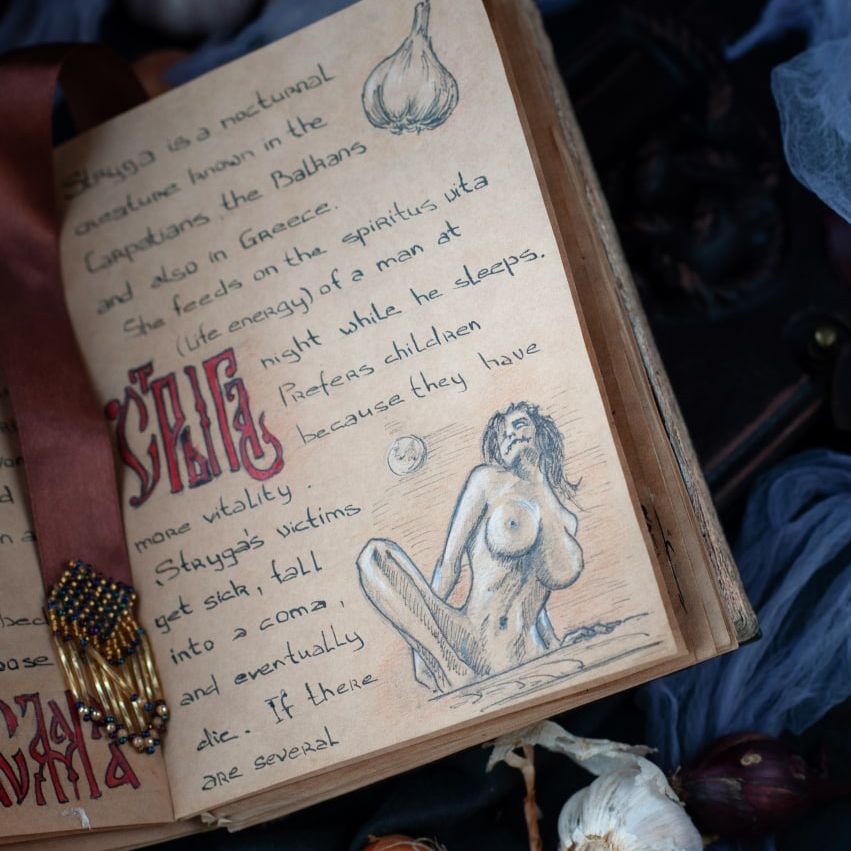 Stryga is a nocturnal
creature known in the
Carpatians, the Balkans
and also in Greece.
She feeds on the spiritus vita
(life energy) of a man at
night while he sleeps.
Prefers children
because they have
СТРЫГА
more vitality.
Stryga's victims
get sick, fall
into a coma,
and eventually
die. If there
are several